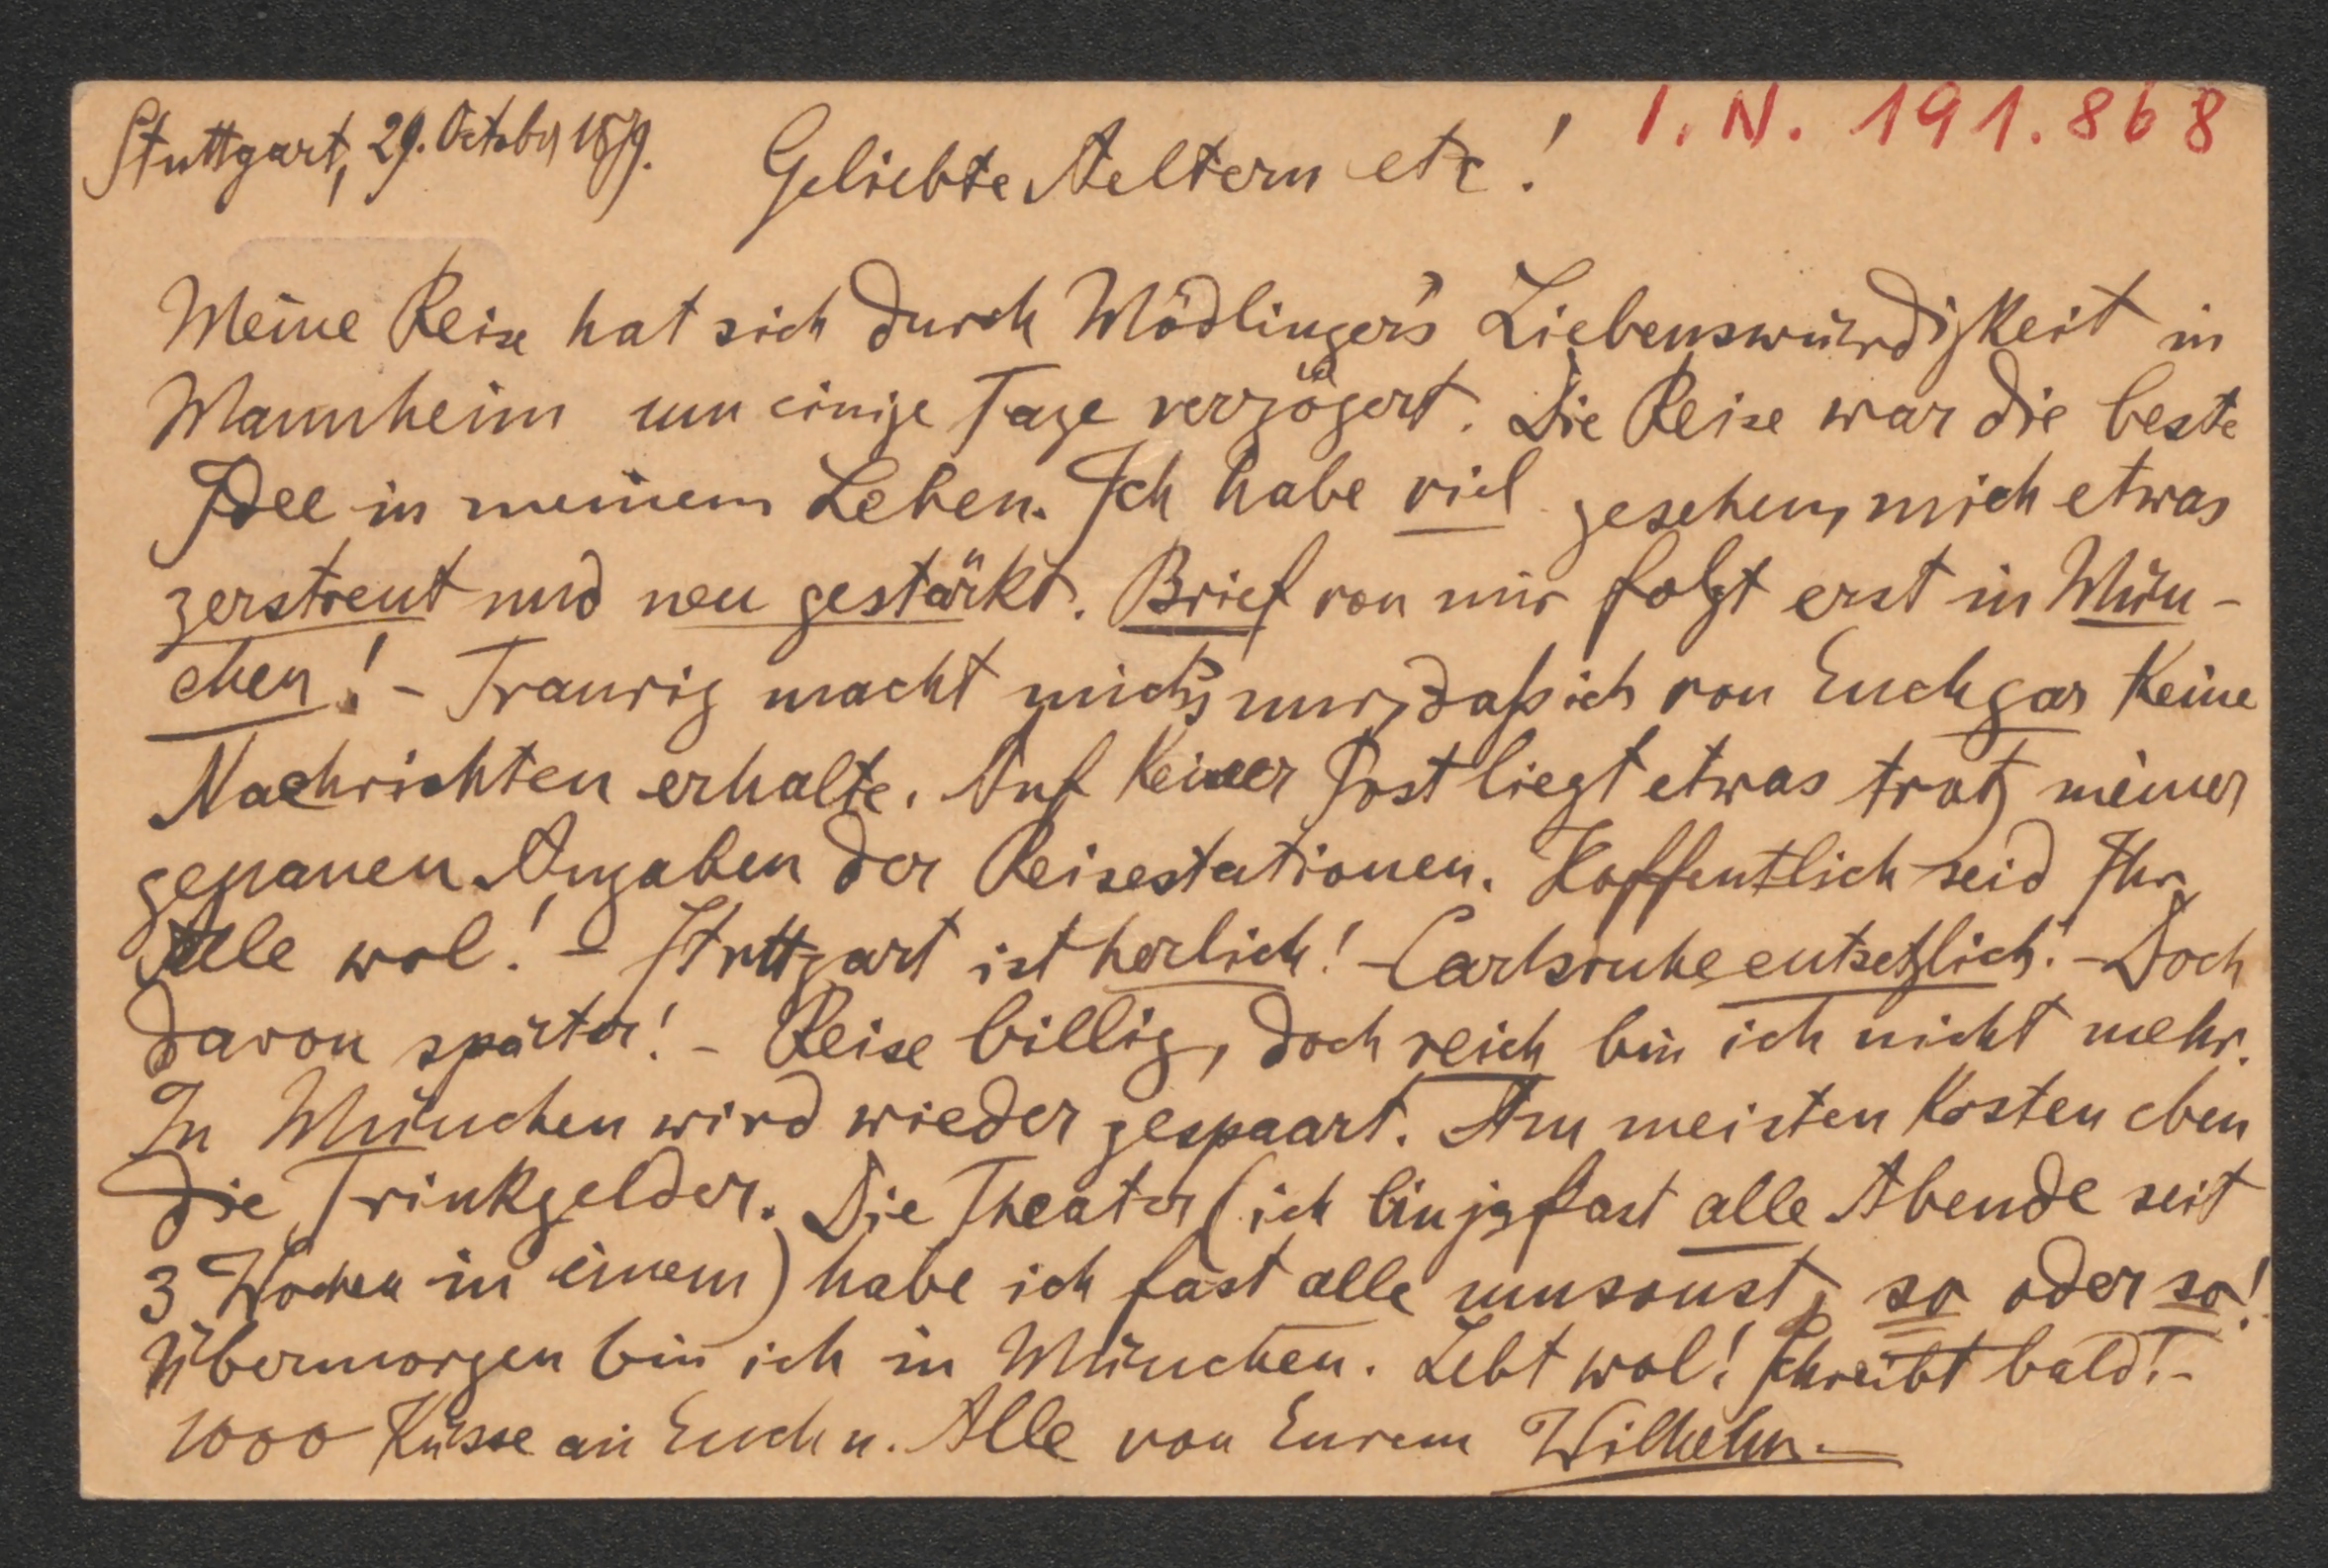 I. N. 191.868
Stuttgart, 29. October 1879.
Geliebte Aeltern etc!
Meine Reise hat sich durch Mödlinger's Liebenswürdigkeit in
Mannheim um einige Tage verzögert. Die Reise war die beste
Idee in meinem Leben. Ich habe viel gesehen, mich etwas
zerstreut und neu gestärkt. Brief von mir folgt erst in Mün-
chen! - Traurig macht mich's nur, daß ich von Euch gar keine
Nachrichten erhalte. Auf keiner Post liegt etwas trotz meiner
genauen Angaben der Reisestationen. Hoffentlich seid Ihr
Alle wol! - Stuttgart ist herlich! - Carlsruhe entsetzlich! - Doch
davon später! - Reise billig, doch reich bin ich nicht mehr.
In München wird wieder gespaart. Am meisten kosten eben
die Trinkgelder. Die Theater (ich bin ja fast alle Abende seit
3 Wochen in einem) habe ich fast alle umsonst, so oder so!
Übermorgen bin ich in München. Lebt wol! Schreibt bald! -
1000 Küsse an Euch u. Alle von Eurem Wilhelm.